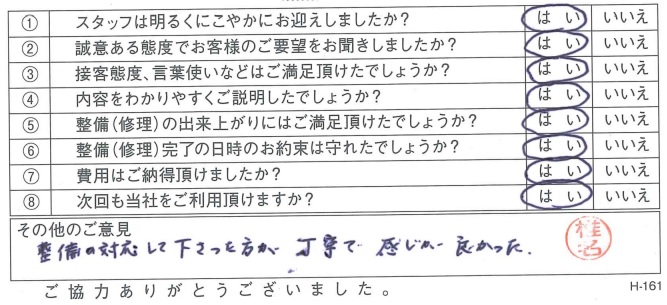 ① スタッフは明るくにこやかにお迎えしましたか? はい いいえ
② 誠意ある態度でお客様のご要望をお聞きしましたか? はい いいえ
③ 接客態度、言葉使いなどはご満足頂けたでしょうか? はい いいえ
④ 内容をわかりやすくご説明したでしょうか? はい いいえ
⑤ 整備(修理)の出来上がりにはご満足頂けたでしょうか? はい いいえ
⑥ 整備(修理)完了の日時のお約束は守れたでしょうか? はい いいえ
⑦ 費用はご納得頂けましたか? はい いいえ
⑧ 次回も当社をご利用頂けますか? はい いいえ
その他のご意見
整備の対応して下さった方が 丁寧で 感じが 良かった.
ご協力ありがとうございました。
H-161